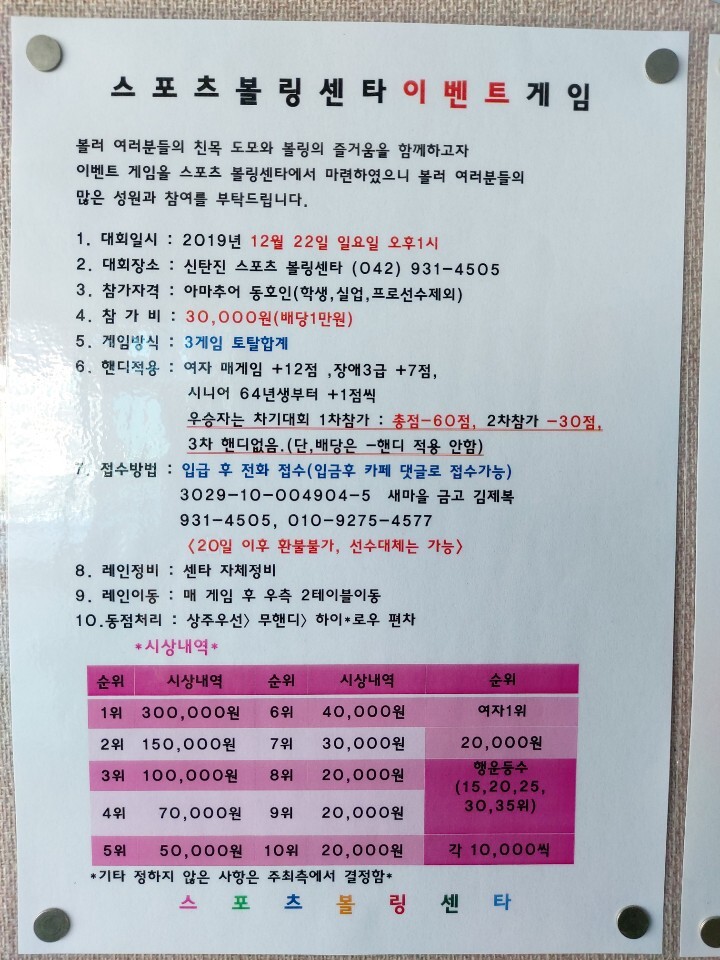 스포츠볼링센타이벤트게임
볼러 여러분들의 친목 도모와 볼링의 즐거움을 함께하고자
이벤트 게임을 스포츠 볼링센타에서 마련하였으니 볼러 여러분들의
많은 성원과 참여를 부탁드립니다.
1. 대회일시 : 2019년 12월 22일 일요일 오후1시
2. 대회장소 : 신탄진 스포츠 볼링센타 (042) 931-4505
3. 참가자격 : 아마추어 동호인(학생,실업,프로선수제외)
4. 참 가 비 : 30,000원(배당1만원)
5. 게임방식 : 3게임 토탈합계
6. 핸디적용 : 여자 매게임 +12점 ,장애3급 +7점,
시니어 64년생부터 +1점씩
우승자는 차기대회 1차참가 : 총점-60점, 2차참가 -30점,
3차 핸디없음.(단,배당은 -핸디 적용 안함)
7. 접수방법 : 입급 후 전화 접수(입금후 카페 댓글로 접수가능)
3029-10-004904-5 새마을 금고 김제복
931-4505, 010-9275-4577
<20일 이후 환불불가, 선수대체는 가능>
8. 레인정비 : 센타 자체정비
9. 레인이동 : 매 게임 후 우측 2테이블이동
10.동점처리 : 상주우선> 무핸디> 하이*로우 편차
*시상내역*
순위 시상내역 순위 시상내역 순위
1위 300,000원 6위 40,000원 여자1위
2위 150,000원 7위 30,000원 20,000원
3위 100,000원 8위 20,000원 행운등수
(15,20,25,
30,35위)
4위 70,000원 9위 20,000원
5위 50,000원 10위 20,000원 각 10,000씩
*기타 정하지 않은 사항은 주최측에서 결정함*
스포츠볼링센타